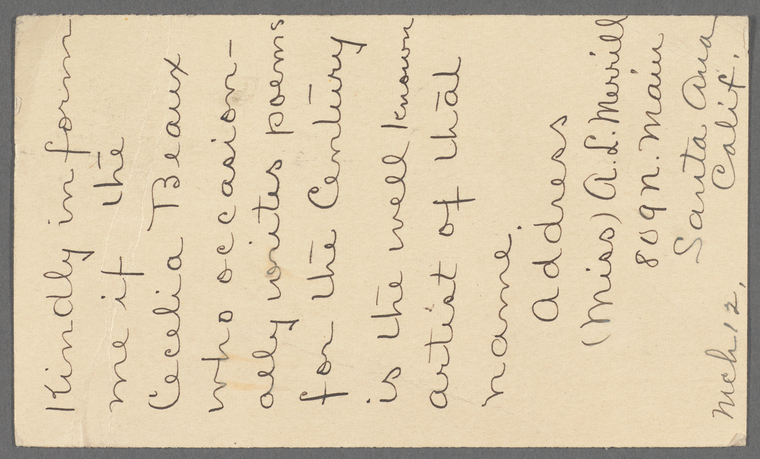 Kindly inform
me if the
Cecelia Beaux
who occasion-
ally writes poems
for the Century
is the well known
artist of that
name.
Address
(Miss) A. L. Merrill
809 N. Main
Santa Ana
Calif.
Mch 12,